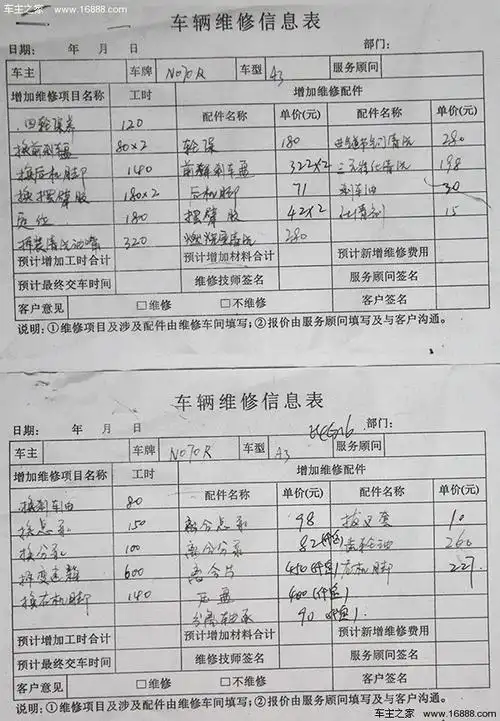 车主之家 www.16888.com
车辆维修信息表
日期: 年 月 日 部门:
车主 车牌 N070R 车型 A3 服务顾问
增加维修项目名称 工时 增加维修配件
配件名称 单价(元) 配件名称 单价(元)
四轮保养 120
换前刹车盘 80×2 轮保 180 节气门清洗 280
换后机脚 140 前轮刹车盘 322×2 三元催化清洗 198
换摆臂胶 180×2 后机脚 71 刹车油 30
定位 180 摆臂胶 42×2 15
拆装清洗油嘴 320 燃烧室清洗 280
预计增加工时合计 预计增加材料合计 预计新增维修费用
预计最终交车时间 维修技师签名 服务顾问签名
客户意见 □维修 □不维修 客户签名
说明:①维修项目及涉及配件由维修车间填写;②报价由服务顾问填写及与客户沟通。
车辆维修信息表
日期: 年 月 日 部门:
车主 车牌 N070R 车型 A3 服务顾问
增加维修项目名称 工时 增加维修配件
配件名称 单价(元) 配件名称 单价(元)
换刹车油 80
换总泵 150 离合总泵 98 拔叉套 10
换分泵 100 离合分泵 82 齿轮油 260
拆变速箱 600 离合片 450 右机脚 227
换右机脚 140 压盘 400
分离轴承 90
预计增加工时合计 预计增加材料合计 预计新增维修费用
预计最终交车时间 维修技师签名 服务顾问签名
客户意见 □维修 □不维修 客户签名
说明:①维修项目及涉及配件由维修车间填写;②报价由服务顾问填写及与客户沟通。
车主之家 www.16888.com